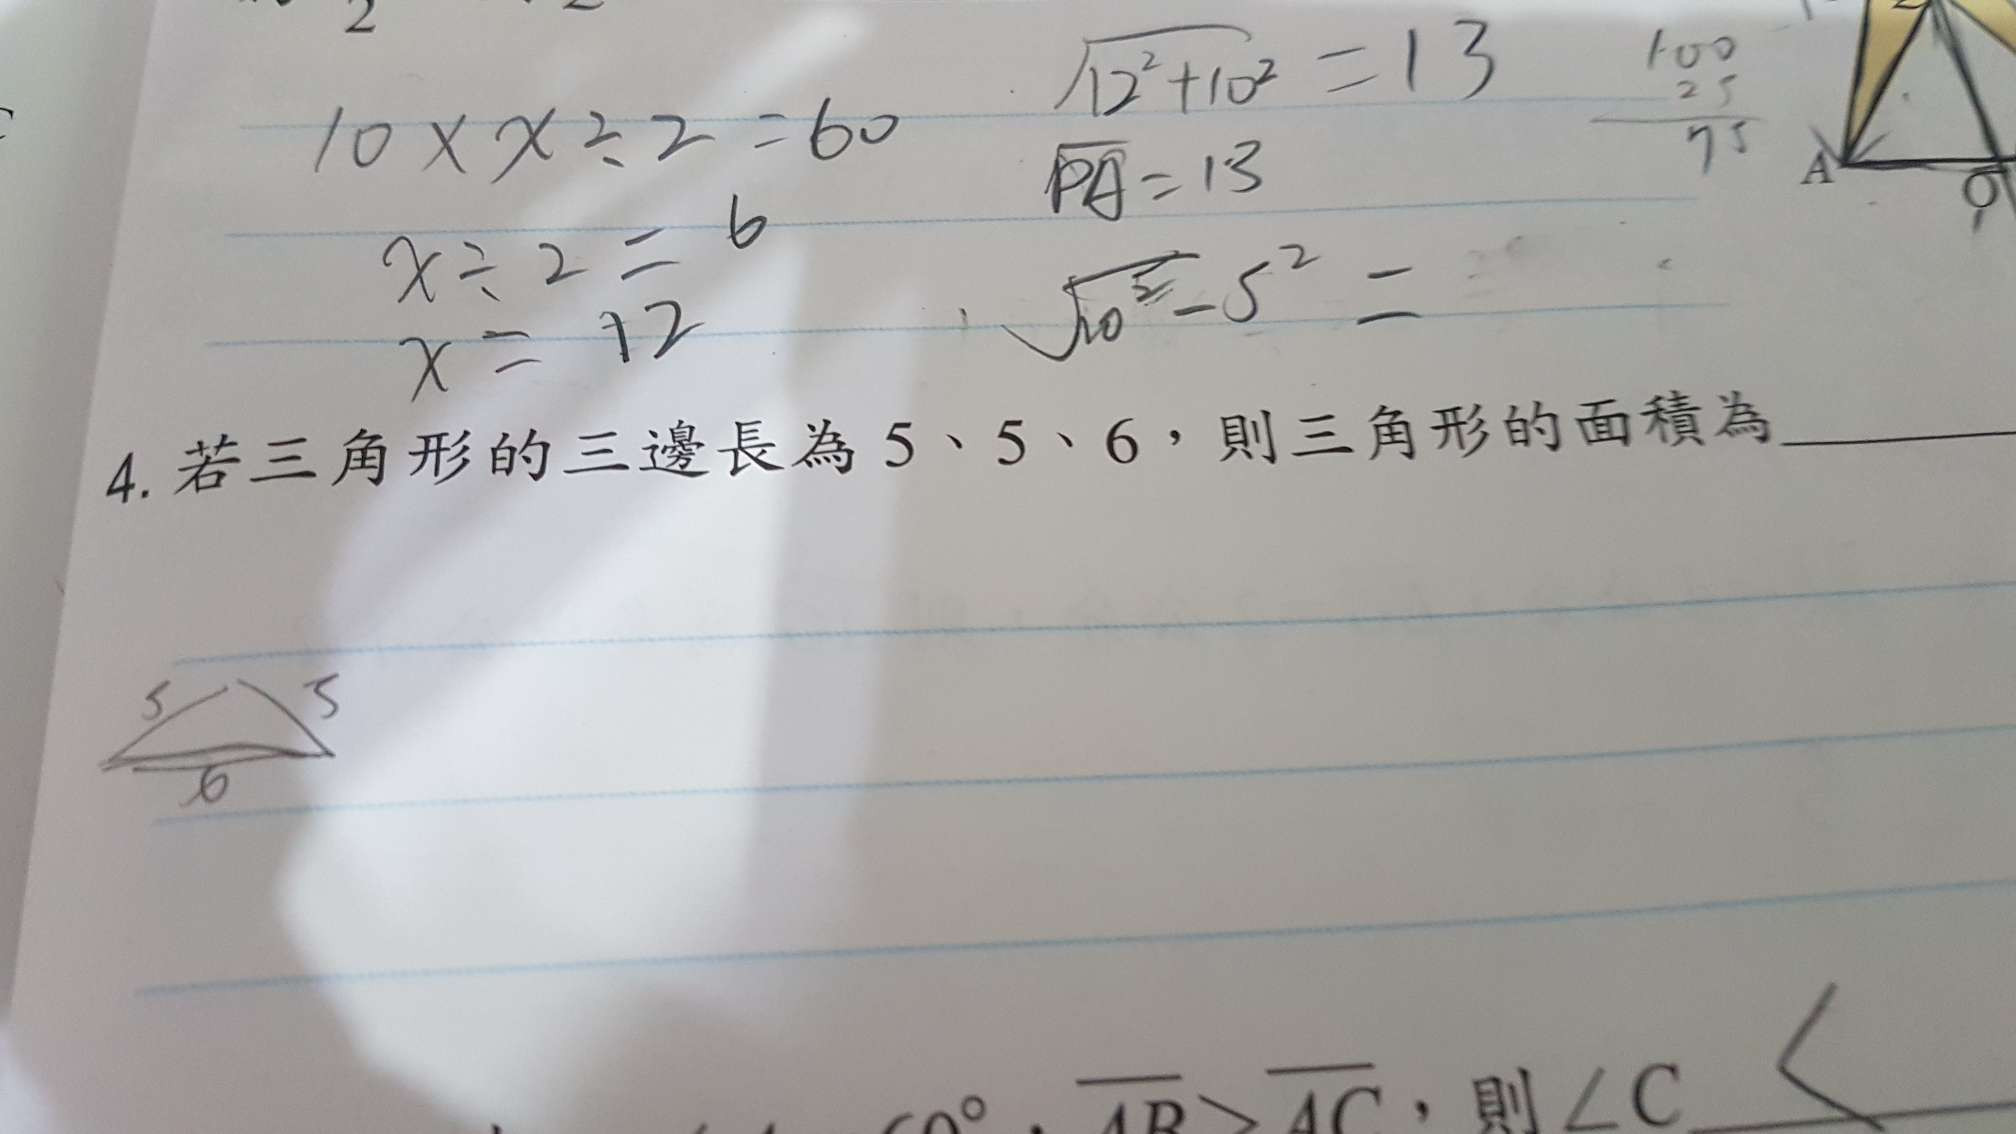 2
10 × x ÷ 2 = 60
x ÷ 2 = 6
x = 12
√12²+10² = 13
PA = 13
√10²-5² =
100
25
75
A
4. 若三角形的三邊長為 5、5、6，則三角形的面積為
5 5
6
60°，AB > AC，則∠C <